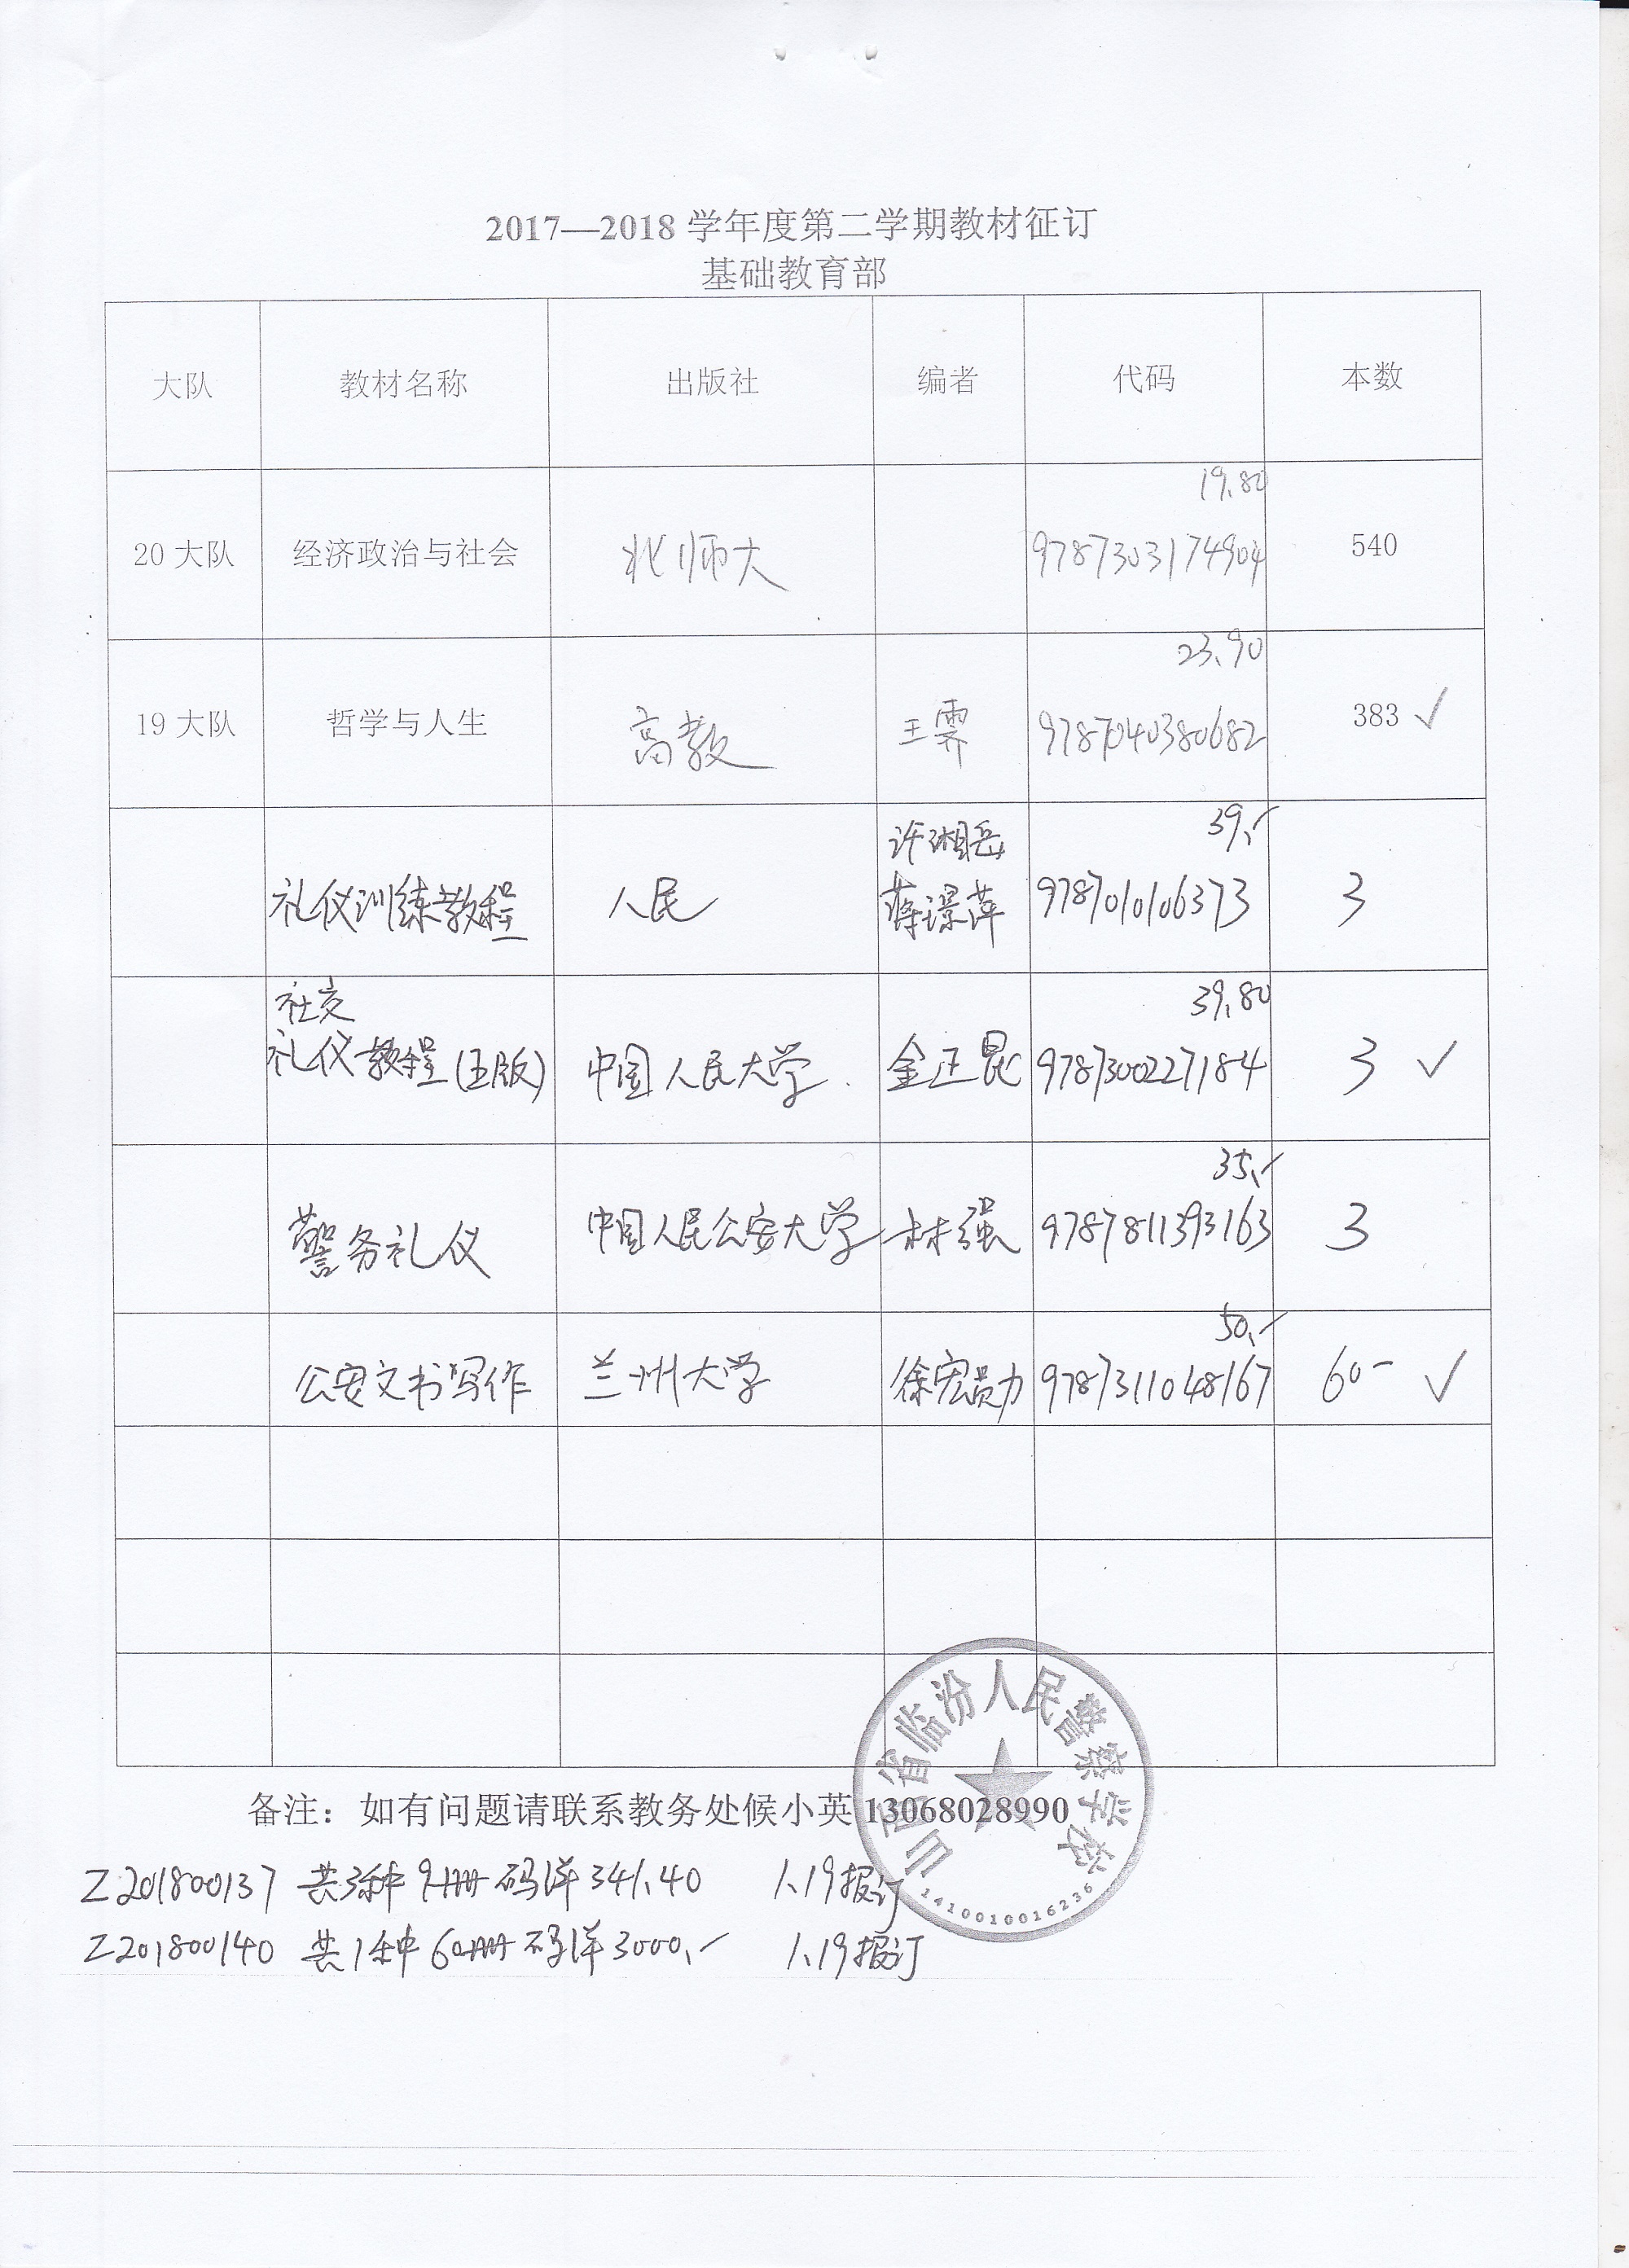 2017—2018 学年度第二学期教材征订
基础教育部
大队 教材名称 出版社 编者 代码 本数
19.80
20 大队 经济政治与社会 北师大 9787303174904 540
23.90
19 大队 哲学与人生 高教 王霁 9787040380682 383 ✓
许湘岳 39.-
礼仪训练教程 人民 蒋璟萍 9787010106373 3
社交 39.80
礼仪教程(五版) 中国人民大学 金正昆 9787300227184 3 ✓
35.-
警务礼仪 中国人民公安大学 林强 9787811393163 3
50.-
公安文书写作 兰州大学 徐宏勋 9787311048167 60- ✓
备注：如有问题请联系教务处候小英 13068028990
山西省临汾人民警察学校
1410010016236
Z201800137 共3种 9册 码洋 341.40 1.19报订
Z201800140 共1种 60册 码洋 3000.- 1.19报订